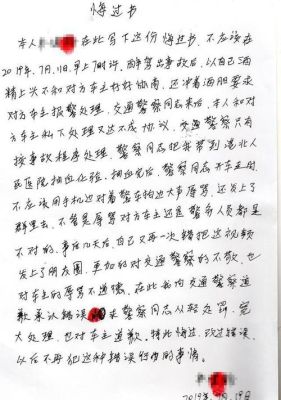 悔过书
本人 在此写下这份悔过书,不应该在
2019年7月11日,早上7时许,醉驾出事故后,以自己酒
精上头不和对方车主好好协商,还冲着酒胆要求
对方车主报警处理,交通警察同志来后,本人和对
方车主私下处理又达不成协议,交通警察只有
按事故程序处理,警察同志把我带到港北人
民医院抽血化验,抽血完后,警察同志开车走时
不应该用手机边对着警车拍边大声辱骂,还发上了
群里去,不管是辱骂对方车主还是警务人员都是
不对的,事后几天后,自己又再一次错把这视频
发上了朋友圈,更加的对交通警察的不敬,也
对车主的辱骂不道德,在此我向交通警察道
歉承认错误 求警察同志从轻处罚,宽
大处理,也对车主道歉。特此悔过,改过错误,
以后不再犯这种错误行为的事情。
2019年7月19日